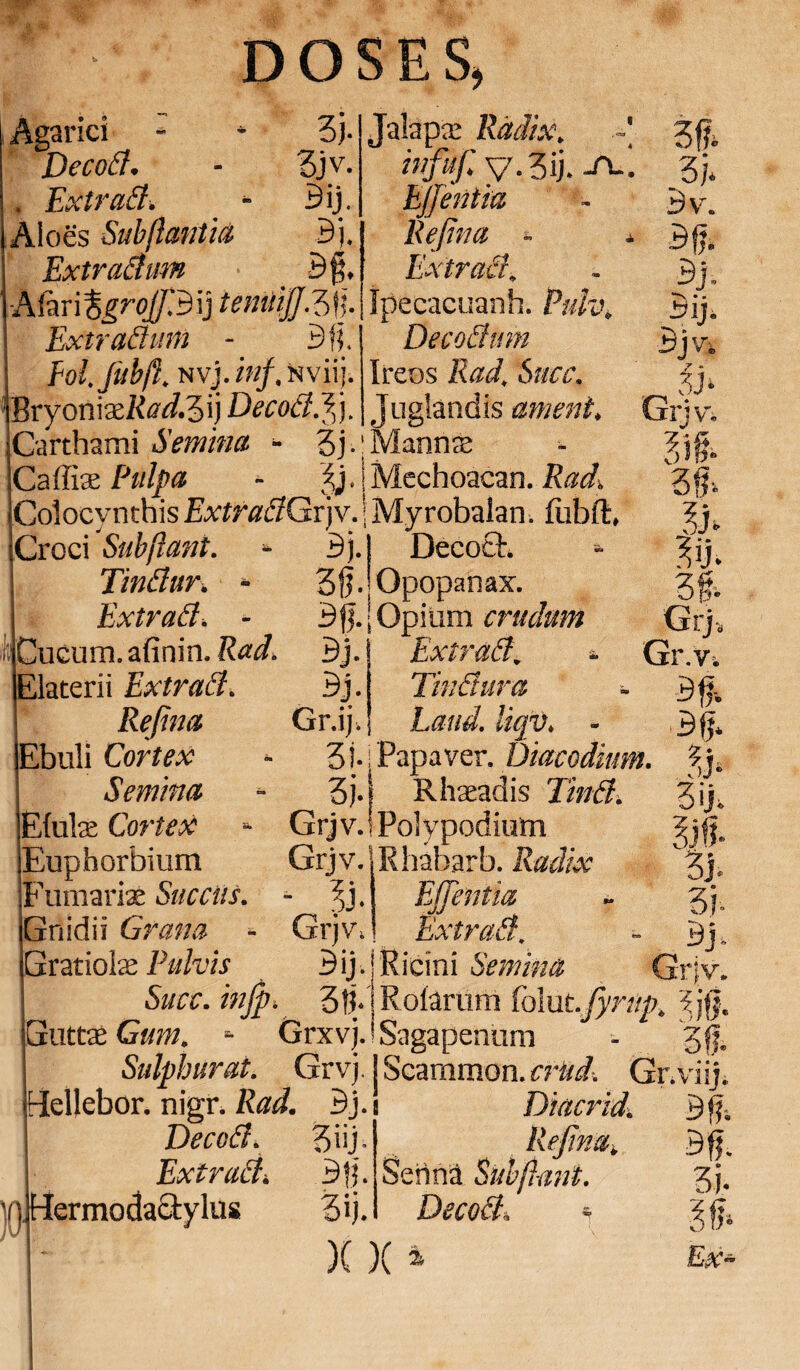 DOSES,
Agarici - - ʒj.
Decoct. - ʒjv.
. Extract. - ℈ij.
Aloës Subſtantia ℈j.
Extractum ℈ß.
Aſari ʒgroſſ.℈ij tenuiſſ.ʒß.
Extractum - ℈ß.
Fol. ſubſt. Nvj. inf. Nviij.
Bryoniæ Rad.ʒij Decoct.℥j.
Carthami Semina - ʒj.
Caſſiæ Pulpa - ℥j.
Colocynthis Extract Grjv.
Croci Subſtant. - ℈j.
Tinctur. - ʒß.
Extract. - ℈ß.
Cucum. aſinin. Rad. ℈j.
Elaterii Extract. ℈j.
Reſina Gr.ij.
Ebuli Cortex - ʒj.
Semina - ʒj.
Eſulæ Cortex - Grjv.
Euphorbium Grjv.
Fumariæ Succus. - ℥j.
Gnidii Grana - Grjv.
Gratiolæ Pulvis ℈ij.
Succ. inſp. ʒß.
Guttæ Gum. - Grxvj.
Sulphurat. Grvj.
Hellebor. nigr. Rad. ℈j.
Decoct. ʒiij.
Extract. ℈ß.
Hermodactylus ʒij.
Jalapæ Radix. - ʒß.
infuſ. ▽.ʒij. ʒj.
Eſſentia - ℈v.
Reſina - - ℈ß.
Extract. - ℈j.
Ipecacuanh. Pulv. ℈ij.
Decoctum ℈jv.
Ireos Rad. Succ. ℥j.
Juglandis ament. Grjv.
Mannæ - ℥jß.
Mechoacan. Rad. ʒß.
Myrobalan. ſubſt. ℥j.
Decoct. - ℥ij.
Opopanax. ʒß.
Opium crudum Grj.
Extract. - Gr.v.
Tinctura - ℈ß.
Laud. liqv. - ℈ß.
Papaver. Diacodium. ℥j.
Rhæadis Tinct. ʒij.
Polypodium ℥jß.
Rhabarb. Radix ʒj.
Eſſentia - ʒj.
Extract. - ℈j.
Ricini Semina Grjv.
Roſarum ſolut. ſyrup. ℥jß.
Sagapenum - ʒß.
Scammon. crud. Gr.viij.
Diacrid. ℈ß.
Reſina. ℈ß.
Senna Subſtant. ʒj.
Decoct. - ℥ß.
)( )( 2 Ex-